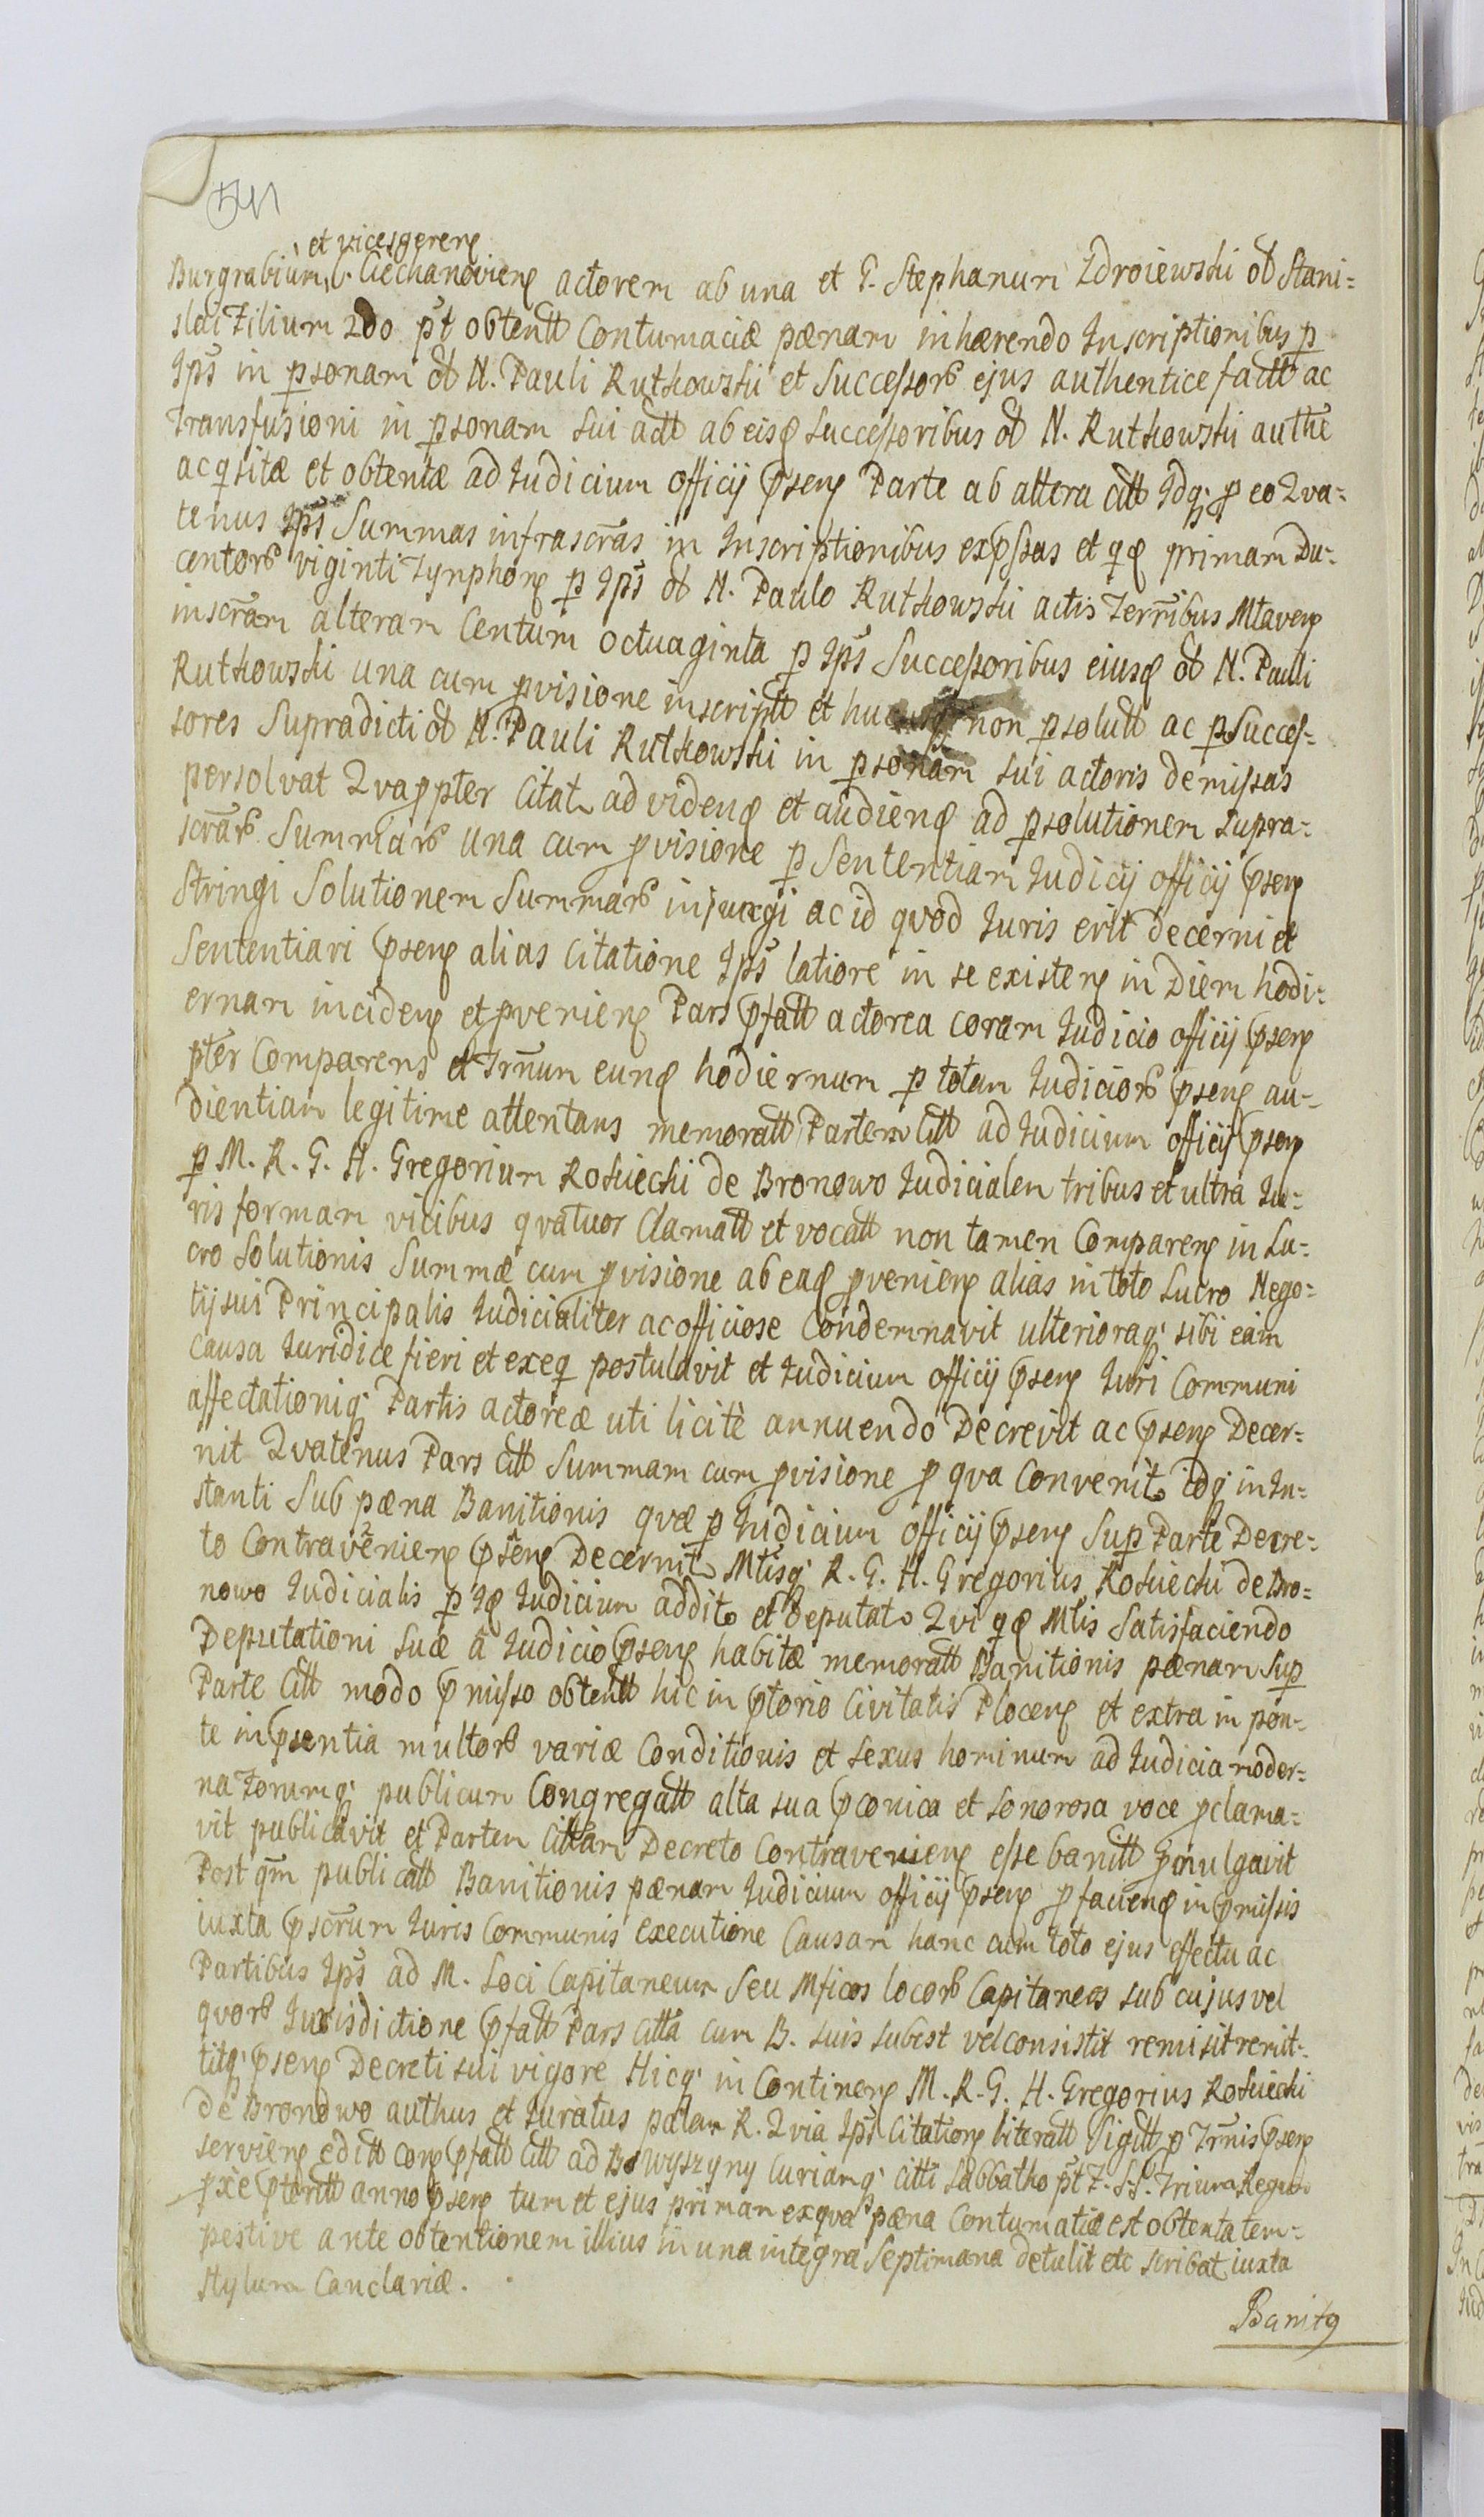 541
et vicesgereng
Burgrabium, C. Ciechanovieng actorem ab una et G. Stephanum Zdroiewski ol Stani=
slai Filium 2do pt obtentt Contumaciæ pænam inhærendo Inscriptionibus p
Ips in psonam ol N. Pauli Rutkowski et Successor ejus authentice factt ac
Transfusioni in psonam sui actt ab eisq Successoribus ol N. Rutkowski authe
acqsitæ et obtentæ ad Iudicium officij pseng Parte ab altera citt Idq; p eo Qva=
tenus Ips Summas infrascras in Inscriptionibus expssas et qq primam Du=
centor viginti Tynphong p Ips ol N. Paulo Rutkowski actis Terribus Mlaveng
inscram alteram Centum octuaginta p Ips Successoribus eiusq ol N. Pauli
Rutkowski una cum pvisione inscriptt et hucusq non psolutt ac p Succes=
sores Supradicti ol N. Pauli Rutkowski in psonam sui actoris demissas
persolvat Qvappter Citat ad videng et audieng ad psolutionem supra=
scrar Summar una cum pvisione p Sententiam Iudicij officij pseng
Stringi Solutionem Summar injungi ac id qvod Iuris erit decerni et
Sententiari pseng alias Citatione Ips latiore in se existeng in Diem hodi=
ernam incideng et pvenieng Pars pfatt actorea coram Iudicio officij pseng
pter Comparens et Trnum eung hodiernum p totam Iudicior pseng au=
dientiam legitime attentans memoratt Partem Citt ad Iudicium officij pseng
p M. R. G. H. Gregorium Kosuiecki de Bronowo Iudicialem tribus et ultra Iu=
ris formam vicibus qvatuor Clamatt et vocatt non tamen Compareng in Lu=
cro Solutionis Summæ cum pvisione ab eaq pvenieng alias in toto Lucro Nego=
tij sui Principalis Iudicialiter ac officiose Condemnavit ulterioraq; sibi eam
Causa Iuridice fieri et exeq postulavit et Iudicium officij pseng Iuri Communi
affectationiq; Partis actoreæ uti licitè annuendo Decrevit ac pseng Decer=
nit Qvatenus Pars citt Summam cum pvisione p qva Convenit idq; in In=
stanti Sub pæna Banitionis qvæ p Iudicium officij pseng Sup Parte Decre=
to Contravenieng pseng Decernit Mtisq; R. G. H. Gregorius Kosuiecki de Bro=
nowo Iudicialis p Iq Iudicium addit et deputat Qvi qq Mtis Satisfaciendo
Deputationi suæ a Iudicio pseng habitæ memoratt Banitionis pænam Sup
Parte citt modo pmisso obtentt hic in ptorio Civitatis Ploceng et extra in pon=
te in psentia multor variæ Conditionis et sexus hominum ad Iudicia moder=
na Forumq; publicum Congregatt alta sua pconica et sonorosa voce pclama=
vit publicavit et Partem Cittam Decreto Contravenieng esse banitt pmulgavit
Post qm publicatt Banitionis pænam Iudicium officij pseng p facieng in pmissis
iuxta pscrum Iuris Communis executione Causam hanc cum toto ejus effectu ac
Partibus Ips ad M. Loci Capitaneum Seu Mficos locor Capitaneos sub cujus vel
qvor Iurisdictione pfatt Pars citta cum B. suis subest vel consistit remisit remit=
titq; pseng Decreti sui vigore Hicq; in Contineng M. R. G. H. Gregorius Kosuiecki
de Bronowo authus et Iuratus palam R. Qvia Ips Citationg literatt Sigitt p Trnis pseng
servieng editt cong pfatt citt ad B. Wyszyny Curiamq; citti Sabbatho pt F. SS. Trium Regum
pxe pteritt anno pseng tum et ejus primam ex qva pæna Contumatiæ est obtenta tem=
pestive ante obtentionem illius in una integra Septimana detulit etc scribat iuxta
Stylum Canclariæ.
Banit9